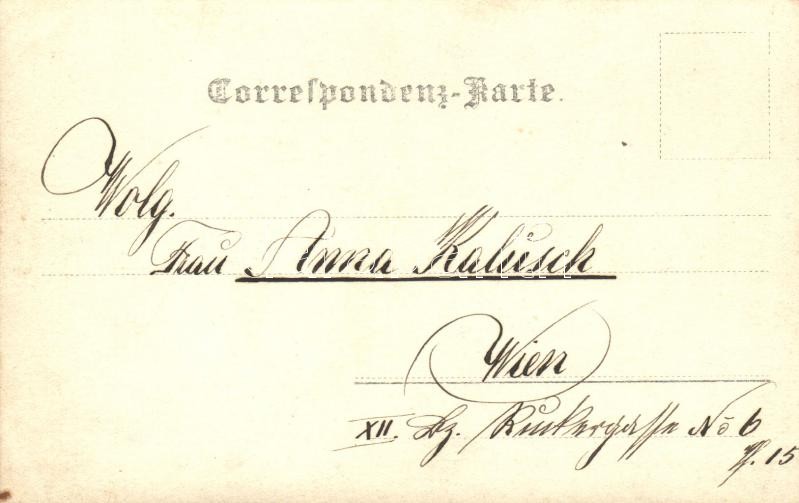 Correspondenz-Karte.
Wolg.
Frau Anna Kalusch
Wien
XII. Bz. Ruckergasse No 6
T. 15